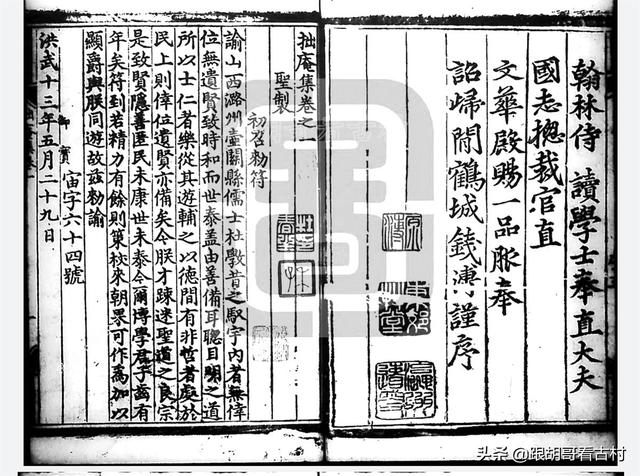 翰林侍 讀學士奉直大夫
國志揔裁官直
文華殿賜一品服奉
詔歸閒鶴城錢溥謹序
拙庵集卷之一
聖製
初召勑符
諭山西潞州壺關縣儒士杜斆昔之馭宇内者無倖
位無遺賢致時和而世泰盖由善備耳聰目明之道
所以士仁者樂從其遊輔之以德間有非哲者處於
民上則倖位遺賢亦備矣今朕才疎迷聖道之良宗
是致賢隱善匿民未康世未泰今爾博學君子齒有
年矣符到若精力有餘則策杖來朝果可作為加以
顯爵與朕同遊故茲勑諭
宙字六十四號
御寶
洪武十三年五月二十九日
头条 @跟胡哥看古村